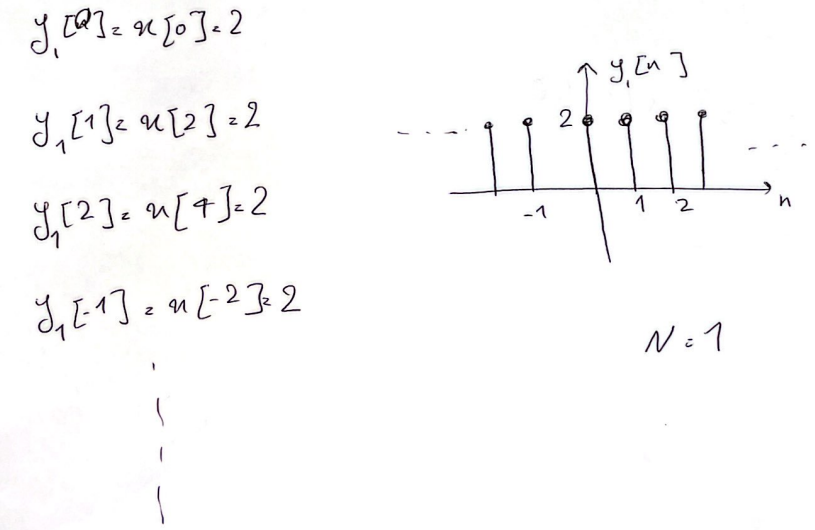 y₁[0] = x[0] = 2
y₁[1] = x[2] = 2
y₁[2] = x[4] = 2
y₁[-1] = x[-2] = 2
y₁[n]
2
-1 1 2 n
N = 1